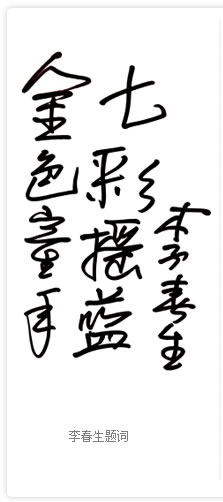 金色童年
七彩摇篮
李春生
李春生题词